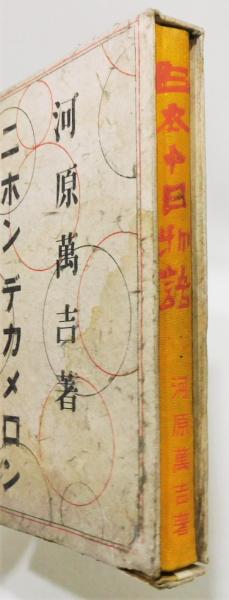 河原萬吉著
ニホンデカメロン
日本十日物語
河原萬吉著